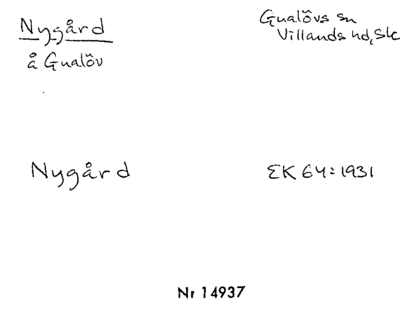 Nygård
å Gualöv
Gualövs sn
Villands hd, Sk
Nygård
EK 64:1931
Nr 14937